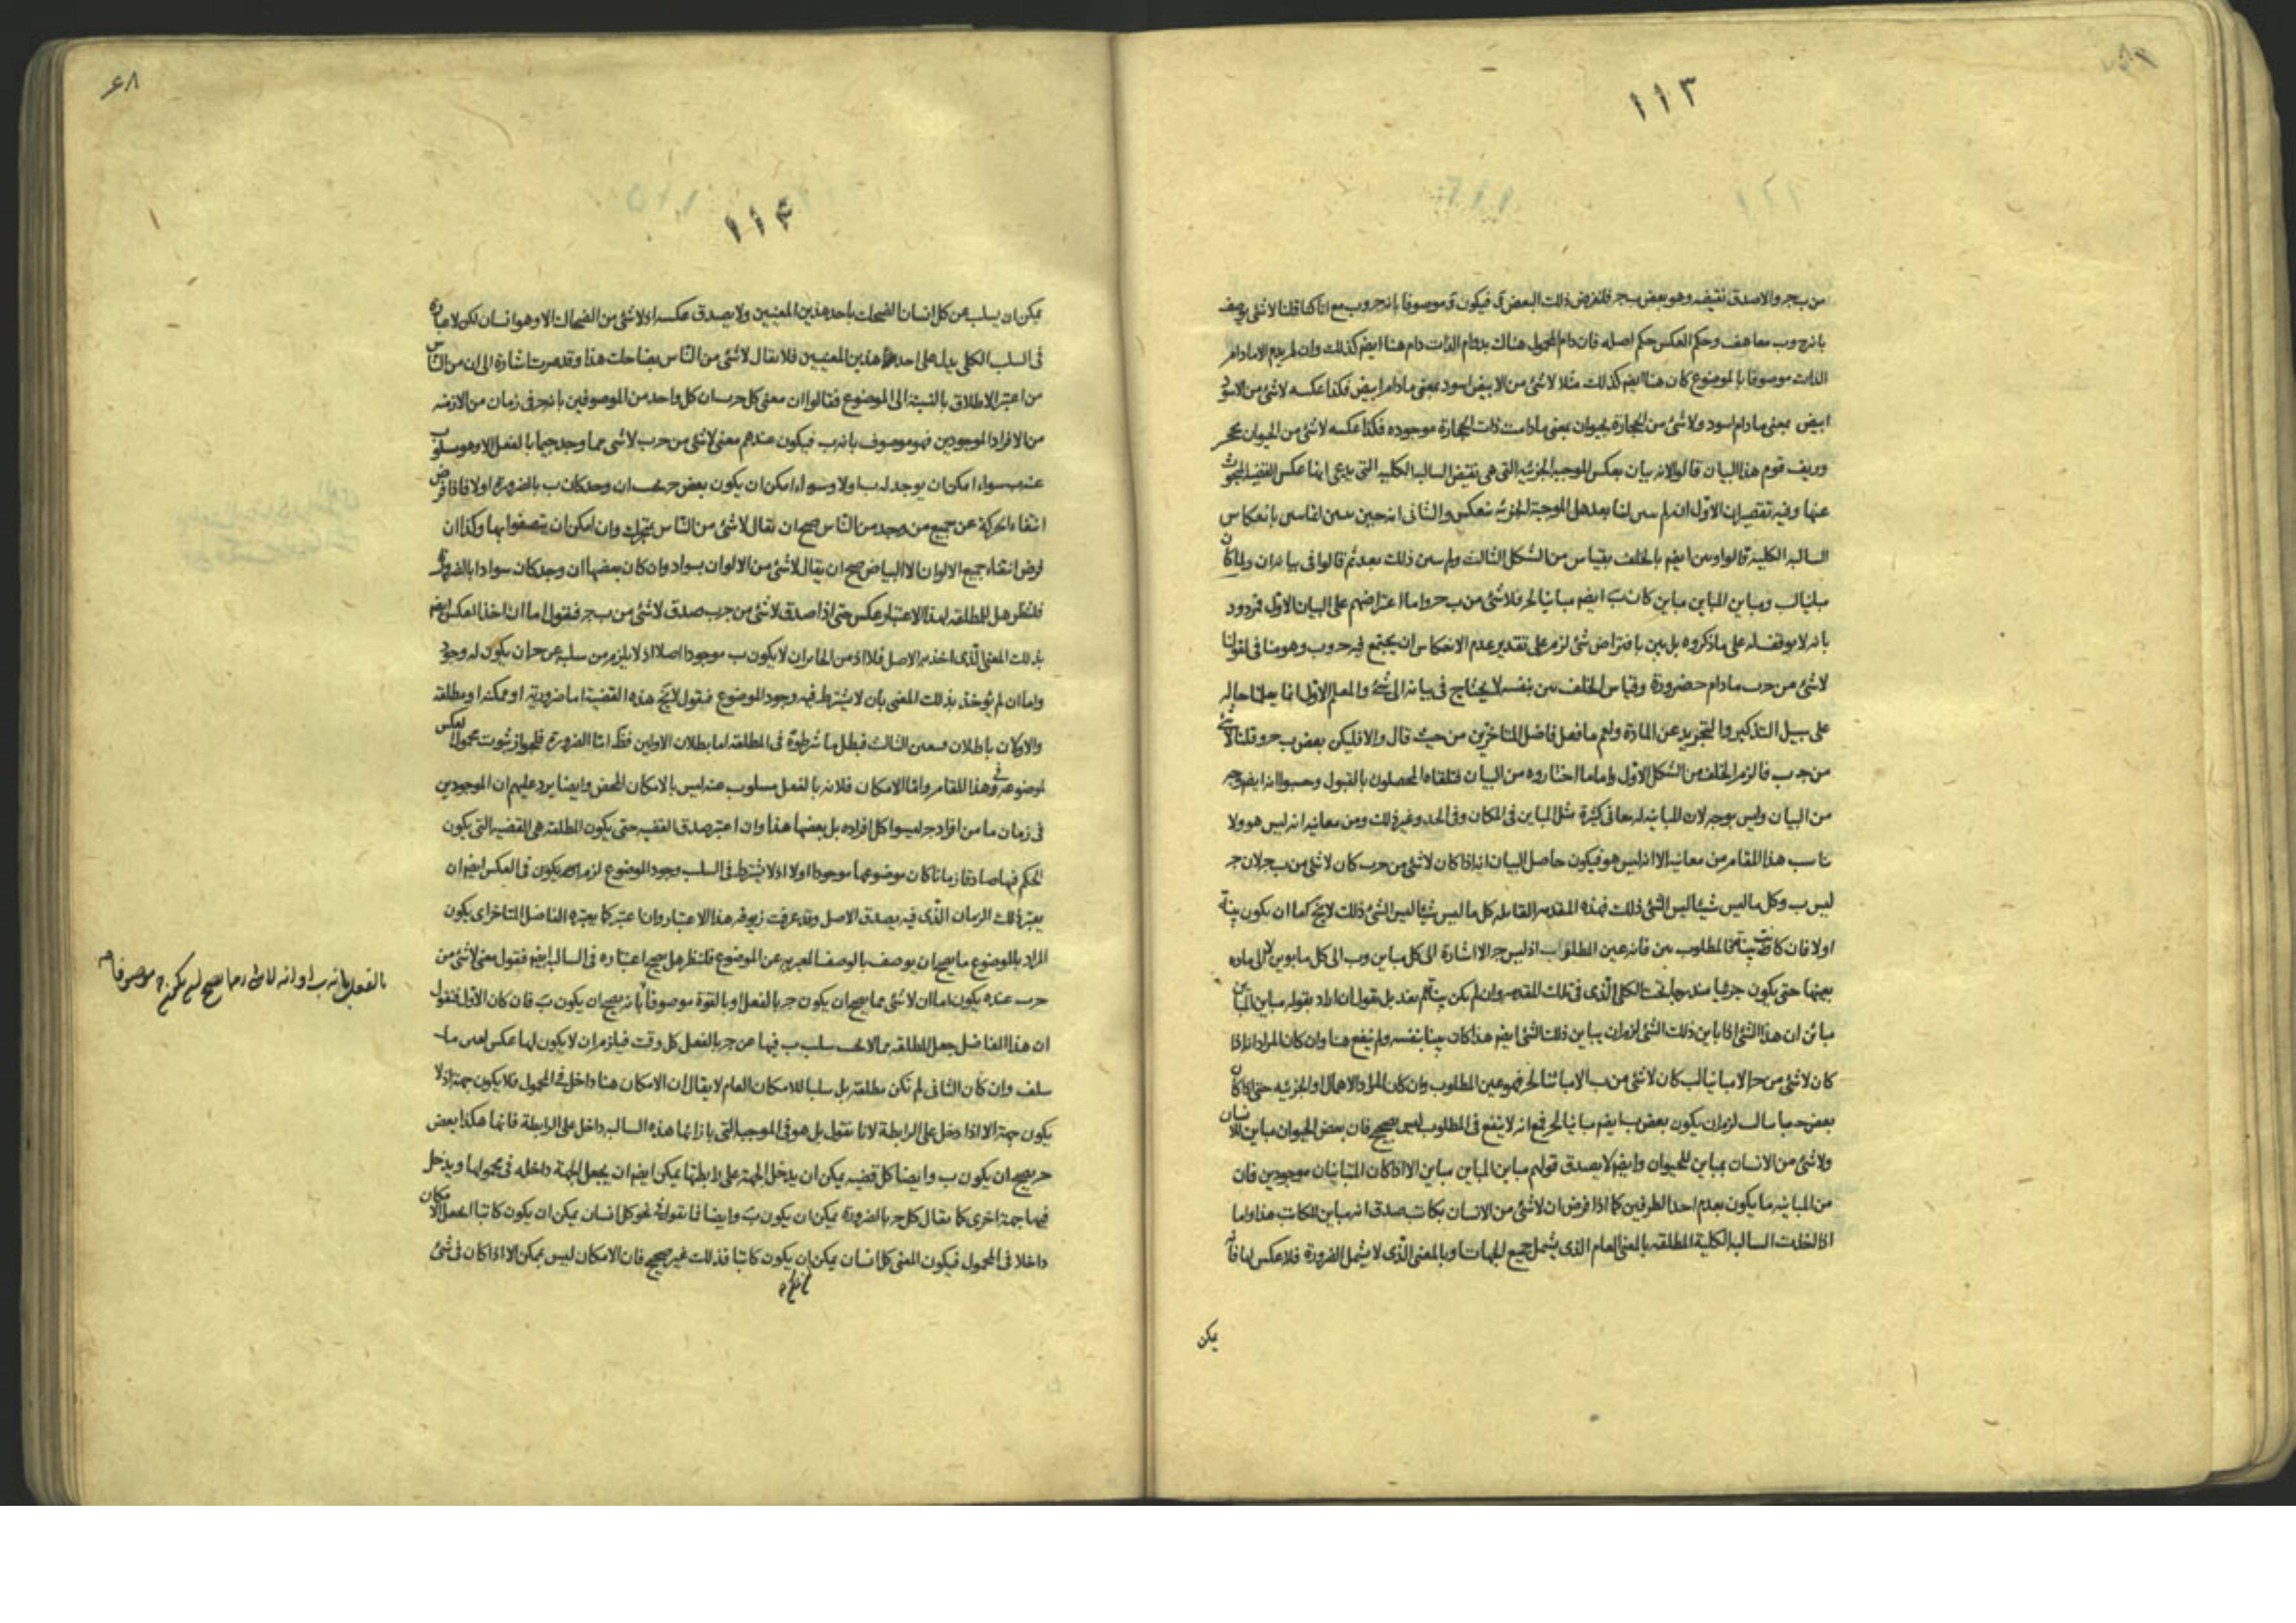 ١١٣
من ب ج والا صدق نقيضه وهو بعض ب ج فلنفرض ذلك البعض د فيكون د موصوفا بانه ج وب مع انا كنا قلنا لا شئ يوصف
بانه ج وب معا هف وحكم العكس حكم اصله فان دام المحمول هناك بدوام الذات دام هنا ايضم كذلك وان لم يدم الا مادام
الذات موصوفا بالموضوع كان هنا ايضم كذلك مثلا لا شئ من الابيض اسود بمعنى مادام ابيض فكذا عكسه لا شئ من الاسود
ابيض بمعنى مادام اسود ولا شئ من الحجارة بحيوان بمعنى مادامت ذات الحجارة موجوده فكذا عكسه لا شئ من الحيوان بحجر
وزيف قوم هذا البيان قالوا لانه بيان بعكس الموجبه الجزئيه التى هى نقيض السالبه الكليه التى يدعى انها عكس القضيه المبحوث
عنها وفيه تقصيران الاول ان لم سن لنا بعد هل الموجبة الجزئيه تنعكس والثانى انه حين سن انما سن بانعكاس
السالبه الكليه قالوا وبين ايضم بالخلف بقياس من الشكل الثالث ولم سن ذلك بعد ثم قالوا فى بيانه ان ولما كان
مباينا لب ومباين المباين مباين كان ب ايضم مباينا لج فلا شئ من ب ج واما اعتراضهم على البيان الاول فمردود
بانه لا توقف له على ماذكروه بل بين بافتراض شئ لزم على تقدير عدم الانعكاس ان يجتمع فيه ج وب وهو مناف لقولنا
لا شئ من ج ب مادام ج ضرورة وقياس الخلف بين بنفسه لا يحتاج فى بيانه الى شئ والمعلم الاول انما يعلمنا حاله
على سبيل التذكير والتجريد عن المادة ولنعم ما فعل فاضل المتاخرين من حيث قال والا فليكن بعض ب ج وقلنا لا شئ
من ج ب فالزم الخلف من الشكل الاول واما ما اختاروه من البيان فتلقاه المحصلون بالقبول وحسبوا انه ايضم وجه
من البيان وليس بوجه لان للمباينه له معانى كثيرة مثل المباين فى المكان وفى الحد وغير ذلك ومن معانيه انه ليس هو ولا
يناسب هذا المقام من معانيه الا انه ليس هو فيكون حاصل البيان انه اذا كان لا شئ من ج ب كان لا شئ من ب ج لان ج
ليس ب وكل ما ليس شيئا ليس الشئ ذلك فهذه المقدمه القائله كل ما ليس شيئا ليس الشئ ذلك لا يخ كما ان يكون بينة
اولا فان كانت بينة فالمطلوب بين فانه عين المطلوب اذ ليس ج الا اشارة الى كل مباين وب الى كل ما بوين لا الى ماده
بعينها حتى يكون جزئيا مندرجا تحت الكلى الذى فى تلك المقدمه وان لم يكن بينة بعد بل نقول ان اراد بقوله مباين المباين
مباين ان هذا الشئ اذا باين ذلك الشئ لزم ان يباين ذلك الشئ ايضم هذا كان بينا بنفسه ولم ينفع هنا وان كان المراد انه اذا
كان لا شئ من ج الا مباينا لب كان لا شئ من ب الا مباينا لج فهو عين المطلوب وان كان المراد الاهمال او الجزئيه حتى اذا كان
بعض ج مباينا لب لزم ان يكون بعض ب ايضم مباينا لج فمع انه لا ينفع فى المطلوب ليس بصحيح فان بعض الحيوان مباين للانسان
ولا شئ من الانسان بمباين للحيوان وايضم لا يصدق قولهم مباين المباين مباين الا اذا كان المتباينان موجودين فان
من المباينه ما يكون بعدم احد الطرفين كما اذا فرض ان لا شئ من الانسان بكاتب صدق انه مباين للكاتب هذا واما
اذا اخذت السالبه الكلية المطلقه بالمعنى العام الذى يشمل جميع الجهات او بالمعنى الذى لا يشمل الضرورة فلا عكس لها فانه
يمكن
٦٨
١١۴
يمكن ان يسلب عن كل انسان الضحاك باحد هذين المعنيين ولا يصدق عكسه اذ لا شئ من الضحاك الا وهو انسان لكن لا عبارة
فى السلب الكلى يدل على احد هذين المعنيين فلا يقال لا شئ من الناس بضاحك هذا وقد مرت اشارة الى ان من الناس
من اعتبر الاطلاق بالنسبة الى الموضوع فقالوا ان معنى كل ج ب ان كل واحد من الموصوفين بانه ج فى زمان من الازمنه
من الافراد الموجودين فهو موصوف بانه ب فيكون عندهم معنى لا شئ من ج ب لا شئ مما وجد جيما بالفعل الا وهو مسلوب
عنه ب سواء امكن ان يوجد له ب اولا وسواء امكن ان يكون بعض ج بحيث ان وجد كان ب بالضرورة اولا فاذا فرض
انتفاء الحركة عن جميع من وجد من الناس صح ان نقال لا شئ من الناس بمتحرك وان امكن ان يتصفوا بها وكذا ان
فرض انتفاء جميع الالوان لا البياض صح ان يقال لا شئ من الالوان بسواد وان كان بعضها ان وجد كان سوادا بالضرورة
فلننظر هل للمطلقه بهذا الاعتبار عكس حتى اذا صدق لا شئ من ج ب صدق لا شئ من ب ج فنقول اما ان اخذ العكس ايضم
بذلك المعنى الذى اخذ به الاصل فلا اذ من الجايز ان لا يكون ب موجودا اصلا اذ لا يلزم من سلبه عن ج ان يكون له وجود
واما ان لم يؤخذ بذلك المعنى بان لا يشترط فيه وجود الموضوع فنقول لا يخ هذه القضية اما ضرورية او ممكنه او مطلقه
والاولان باطلان وتعين الثالث فبطل ما شرطوه فى المطلقه اما بطلان الاولين فظ اما الضرورة فلجواز ثبوت محمول العكس
لموضوعه فى هذا المقام واما الامكان فلانه بالفعل مسلوب عنه ليس بالامكان المحض وايضا يرد عليهم ان الموجودين
فى زمان ما من افراد ج ليسوا كل افراده بل بعضها هذا وان اعتبر صدق القضيه حتى يكون المطلقه هى القضيه التى يكون
الحكم فيها صادقا زمانا كان موضوعها موجودا اولا اذ لا يشترط فى السلب وجود الموضوع لزم ان يكون فى العكس ايضم ان
يعتبر ذلك الزمان الذى فيه يصدق الاصل وقد عرفت زيوف هذا الاعتبار وان اعتبر كما يعتبره الفاضل المتاخر اى يكون
المراد بالموضوع ما يصح ان يوصف بالوصف المعبر به عن الموضوع فلننظر هل يصح اعتباره فى السالب ايضم فنقول معنى لا شئ من
ج ب عنده يكون اما ان لا شئ مما يصح ان يكون ج بالفعل او بالقوة موصوفا بانه يصح ان يكون ب فان كان الاول فنقول
ان هذا الفاضل جعل المطلقه مما لا يجب سلب ب فيها عن ج بالفعل كل وقت فيلزم ان لا يكون لها عكس لعين ما
سلف وان كان الثانى لم تكن مطلقة بل سلبا للامكان العام لا يقال ان الامكان هنا داخل فى المحمول فلا يكون جهة اذ لا
يكون جهة الا اذا دخل على الرابطة لانا نقول بل هو فى الموجبه التى بازائها هذه السالبه داخل على الرابطة فانها هكذا بعض
ج يصح ان يكون ب وايضا كل قضيه يمكن ان يدخل الجهة على رابطتها يمكن ايضم ان يجعل الجهة داخله فى محمولها ويدخل
فيها جهة اخرى كما يقال كل ج بالضرورة يمكن ان يكون ب وايضا فما نقول فى نحو كل انسان يمكن ان يكون كاتبا اجعل الامكان
داخلا فى المحمول فيكون المعنى كل انسان يمكن ان يكون كاتبا فذلك غير صحيح فان الامكان ليس بممكن الا اذا كان فى شئ
بالفعل بانه ب او انه لا شئ مما يصح ان يكون ج موصوفا